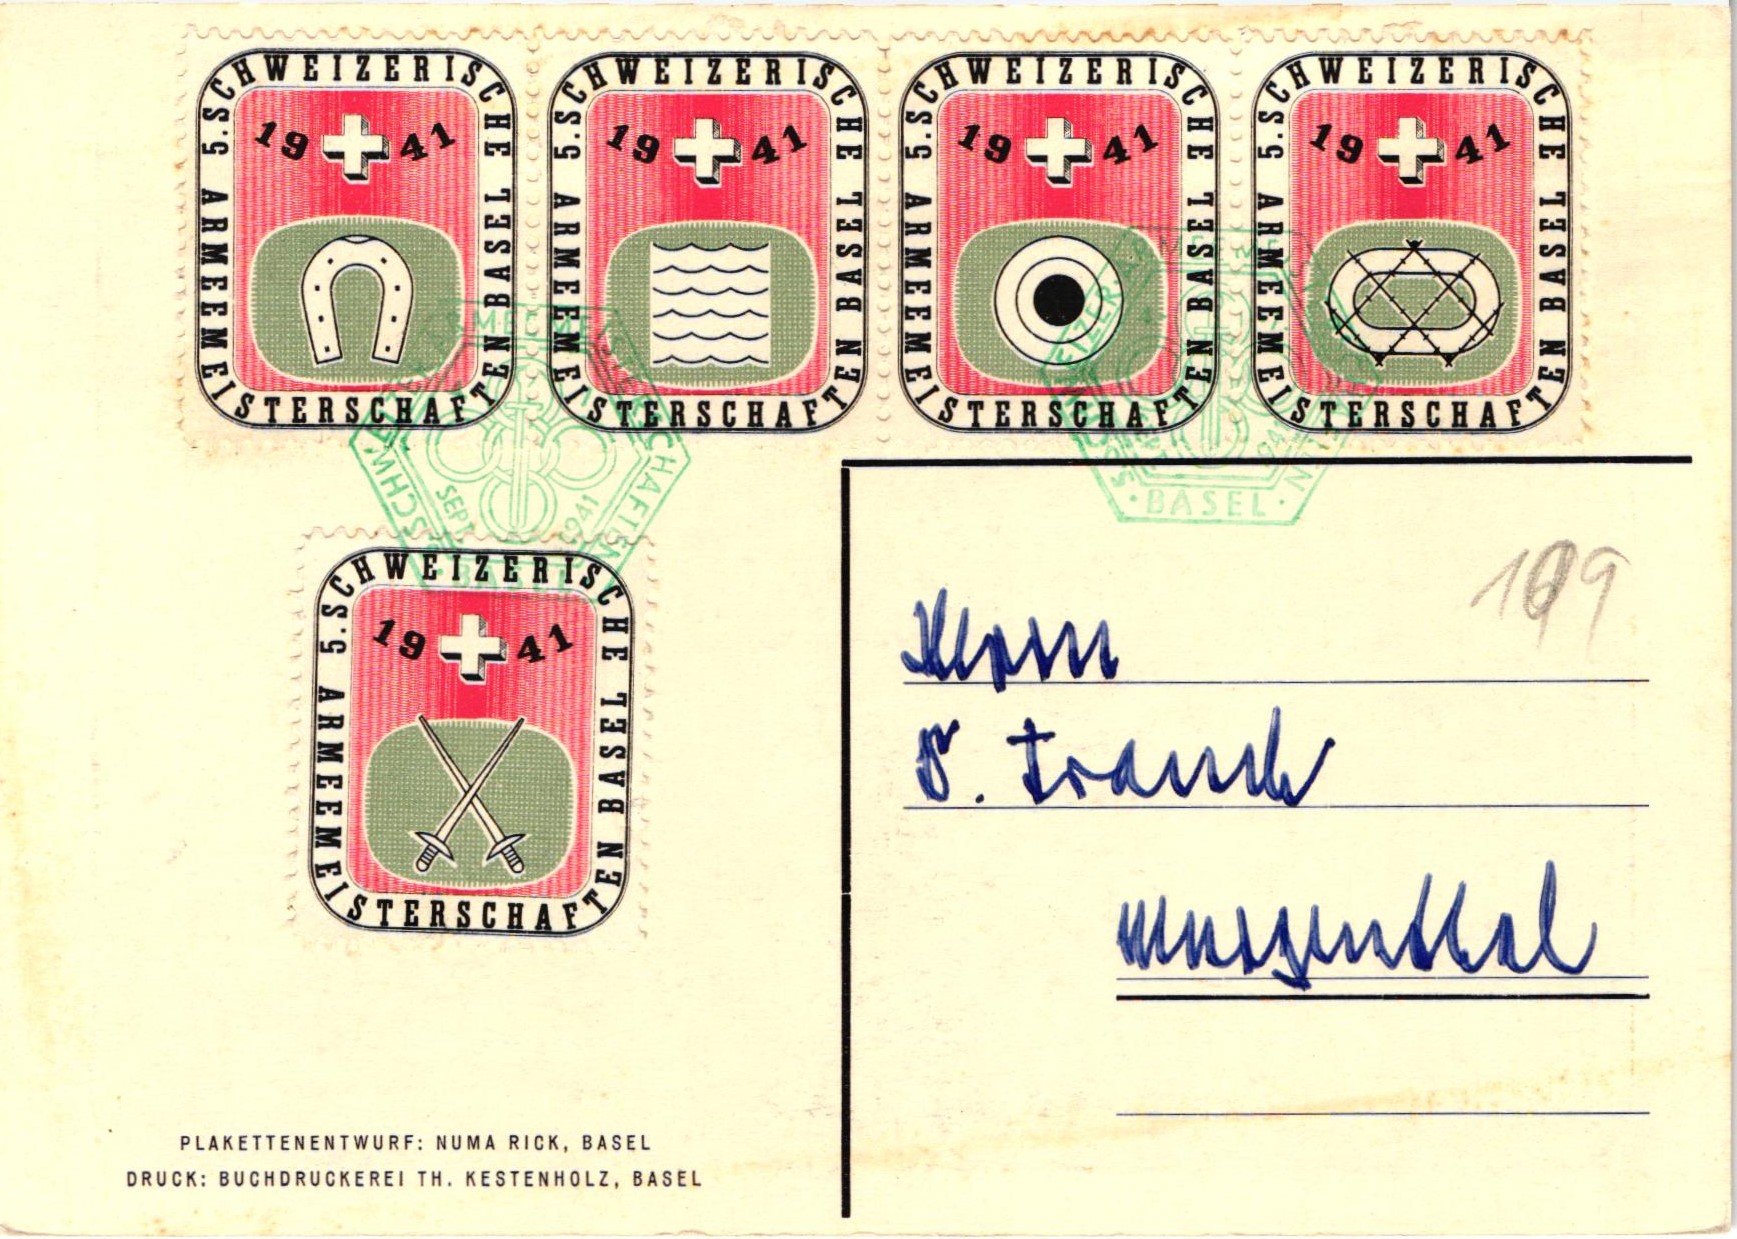 5. SCHWEIZERISCHE ARMEEMEISTERSCHAFTEN BASEL
19 41
5. SCHWEIZERISCHE ARMEEMEISTERSCHAFTEN BASEL
19 41
5. SCHWEIZERISCHE ARMEEMEISTERSCHAFTEN BASEL
19 41
5. SCHWEIZERISCHE ARMEEMEISTERSCHAFTEN BASEL
19 41
SEPT. 1941
· BASEL ·
5. SCHWEIZERISCHE ARMEEMEISTERSCHAFTEN BASEL
19 41
Herrn
Murgenthal
PLAKETTENENTWURF: NUMA RICK, BASEL
DRUCK: BUCHDRUCKEREI TH. KESTENHOLZ, BASEL